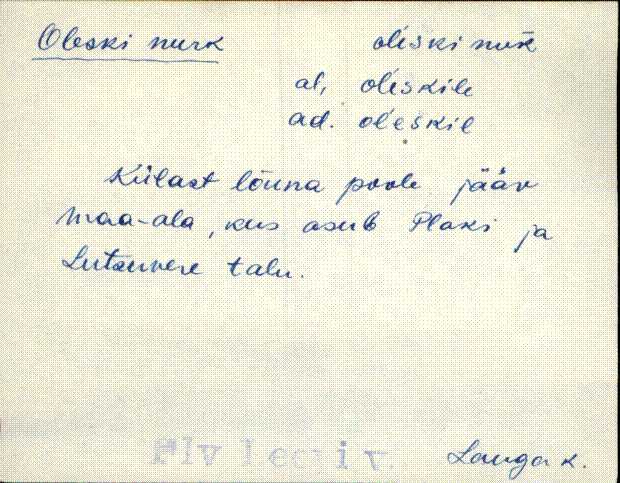 Oleski nurk oleski nurk
al, oleskile
ad. oleskil
Külast lõuna poole jääv
maa-ala, kus asub Plaki ja
talu.
k.